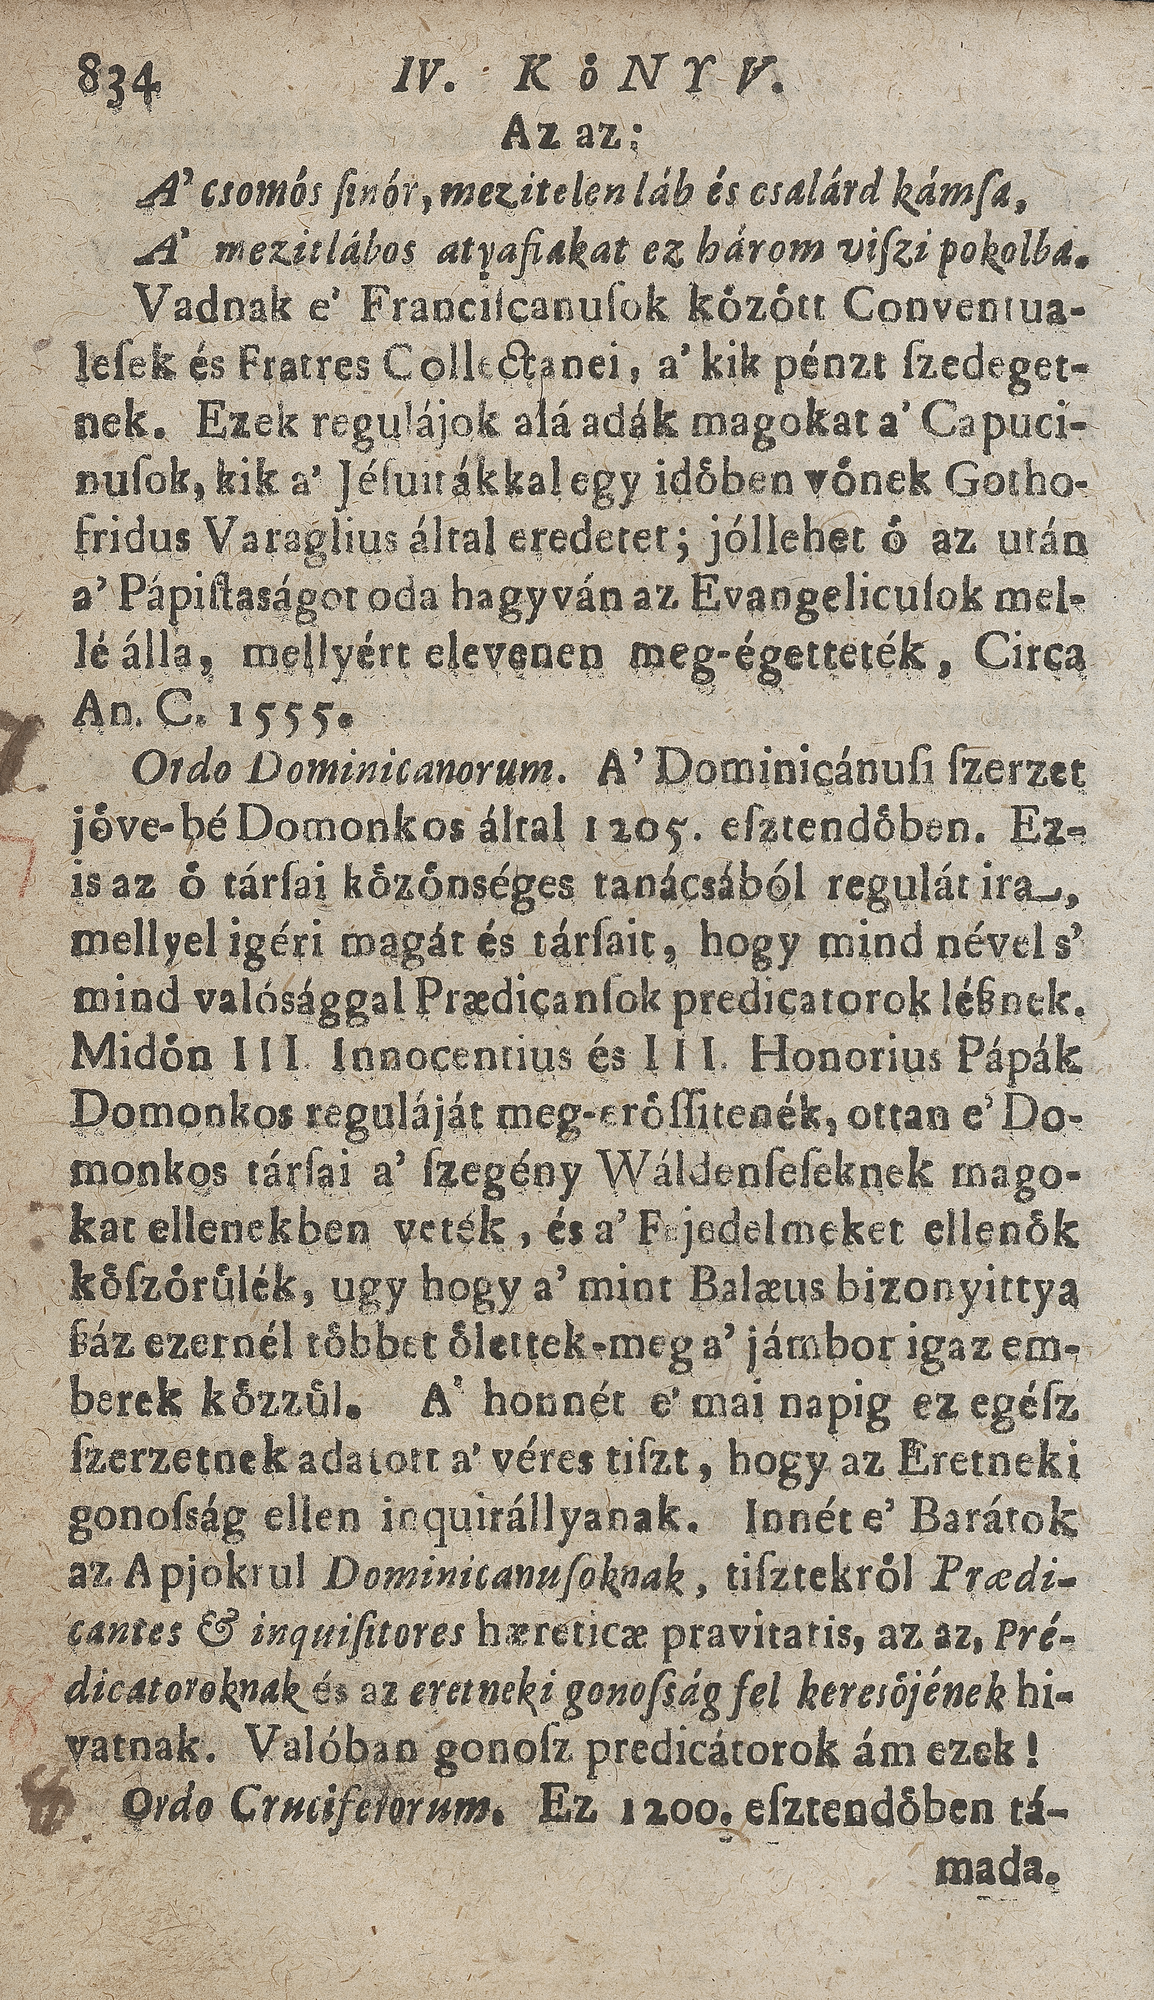 834 IV. KöNYV.
Az az:
A' csomós ſinór, mezitelen láb és csalárd kámſa,
A' mezitlábos atyafiakat ez három viſzi pokolba.
Vadnak e' Franciſcanuſok kȯzȯtt Conventua-
leſek és Fratres Collectanei, a' kik pénzt ſzedeget-
nek. Ezek regulájok alá adák magokat a' Capuci-
nuſok, kik a' Jéſuitákkal egy idȯben vȯnek Gotho-
fridus Varaglius által eredetet; jóllehet ȯ az után
a' Pápiſtaságot oda hagyván az Evangelicuſok mel-
lé álla, mellyért elevenen meg-égetteték, Circa
An. C. 1555.
Ordo Dominicanorum. A' Dominicánuſi ſzerzet
jȯve-bé Domonkos által 1205. eſztendȯben. Ez-
is az ȯ társai kȯzȯnséges tanácsából regulát ira,
mellyel igéri magát és társait, hogy mind nével s'
mind valósággal Prædicanſok predicatorok léßnek.
Midȯn III. Innocentius és III. Honorius Pápák
Domonkos reguláját meg-erȯſſitenék, ottan e' Do-
monkos társai a' ſzegény Wáldenſeſeknek mago-
kat ellenekben veték, és a' Fejedelmeket ellenȯk
kȯſzȯrülék, ugy hogy a' mint Balæus bizonyittya
ßáz ezernél tȯbbet ȯlettek-meg a' jámbor igaz em-
berek kȯzzül. A' honnét e' mai napig ez egéſz
ſzerzetnek adatott a' véres tiſzt, hogy az Eretneki
gonoſság ellen inquirállyanak. Innét e' Barátok
az Apjokrul Dominicanuſoknak, tiſztekrȯl Prædi-
cantes & inquiſitores hæreticæ pravitatis, az az, Pré-
dicatoroknak és az eretneki gonoſság fel keresȯjének hi-
vatnak. Valóban gonoſz predicátorok ám ezek!
Ordo Cruciferorum. Ez 1200. eſztendȯben tá-
mada.